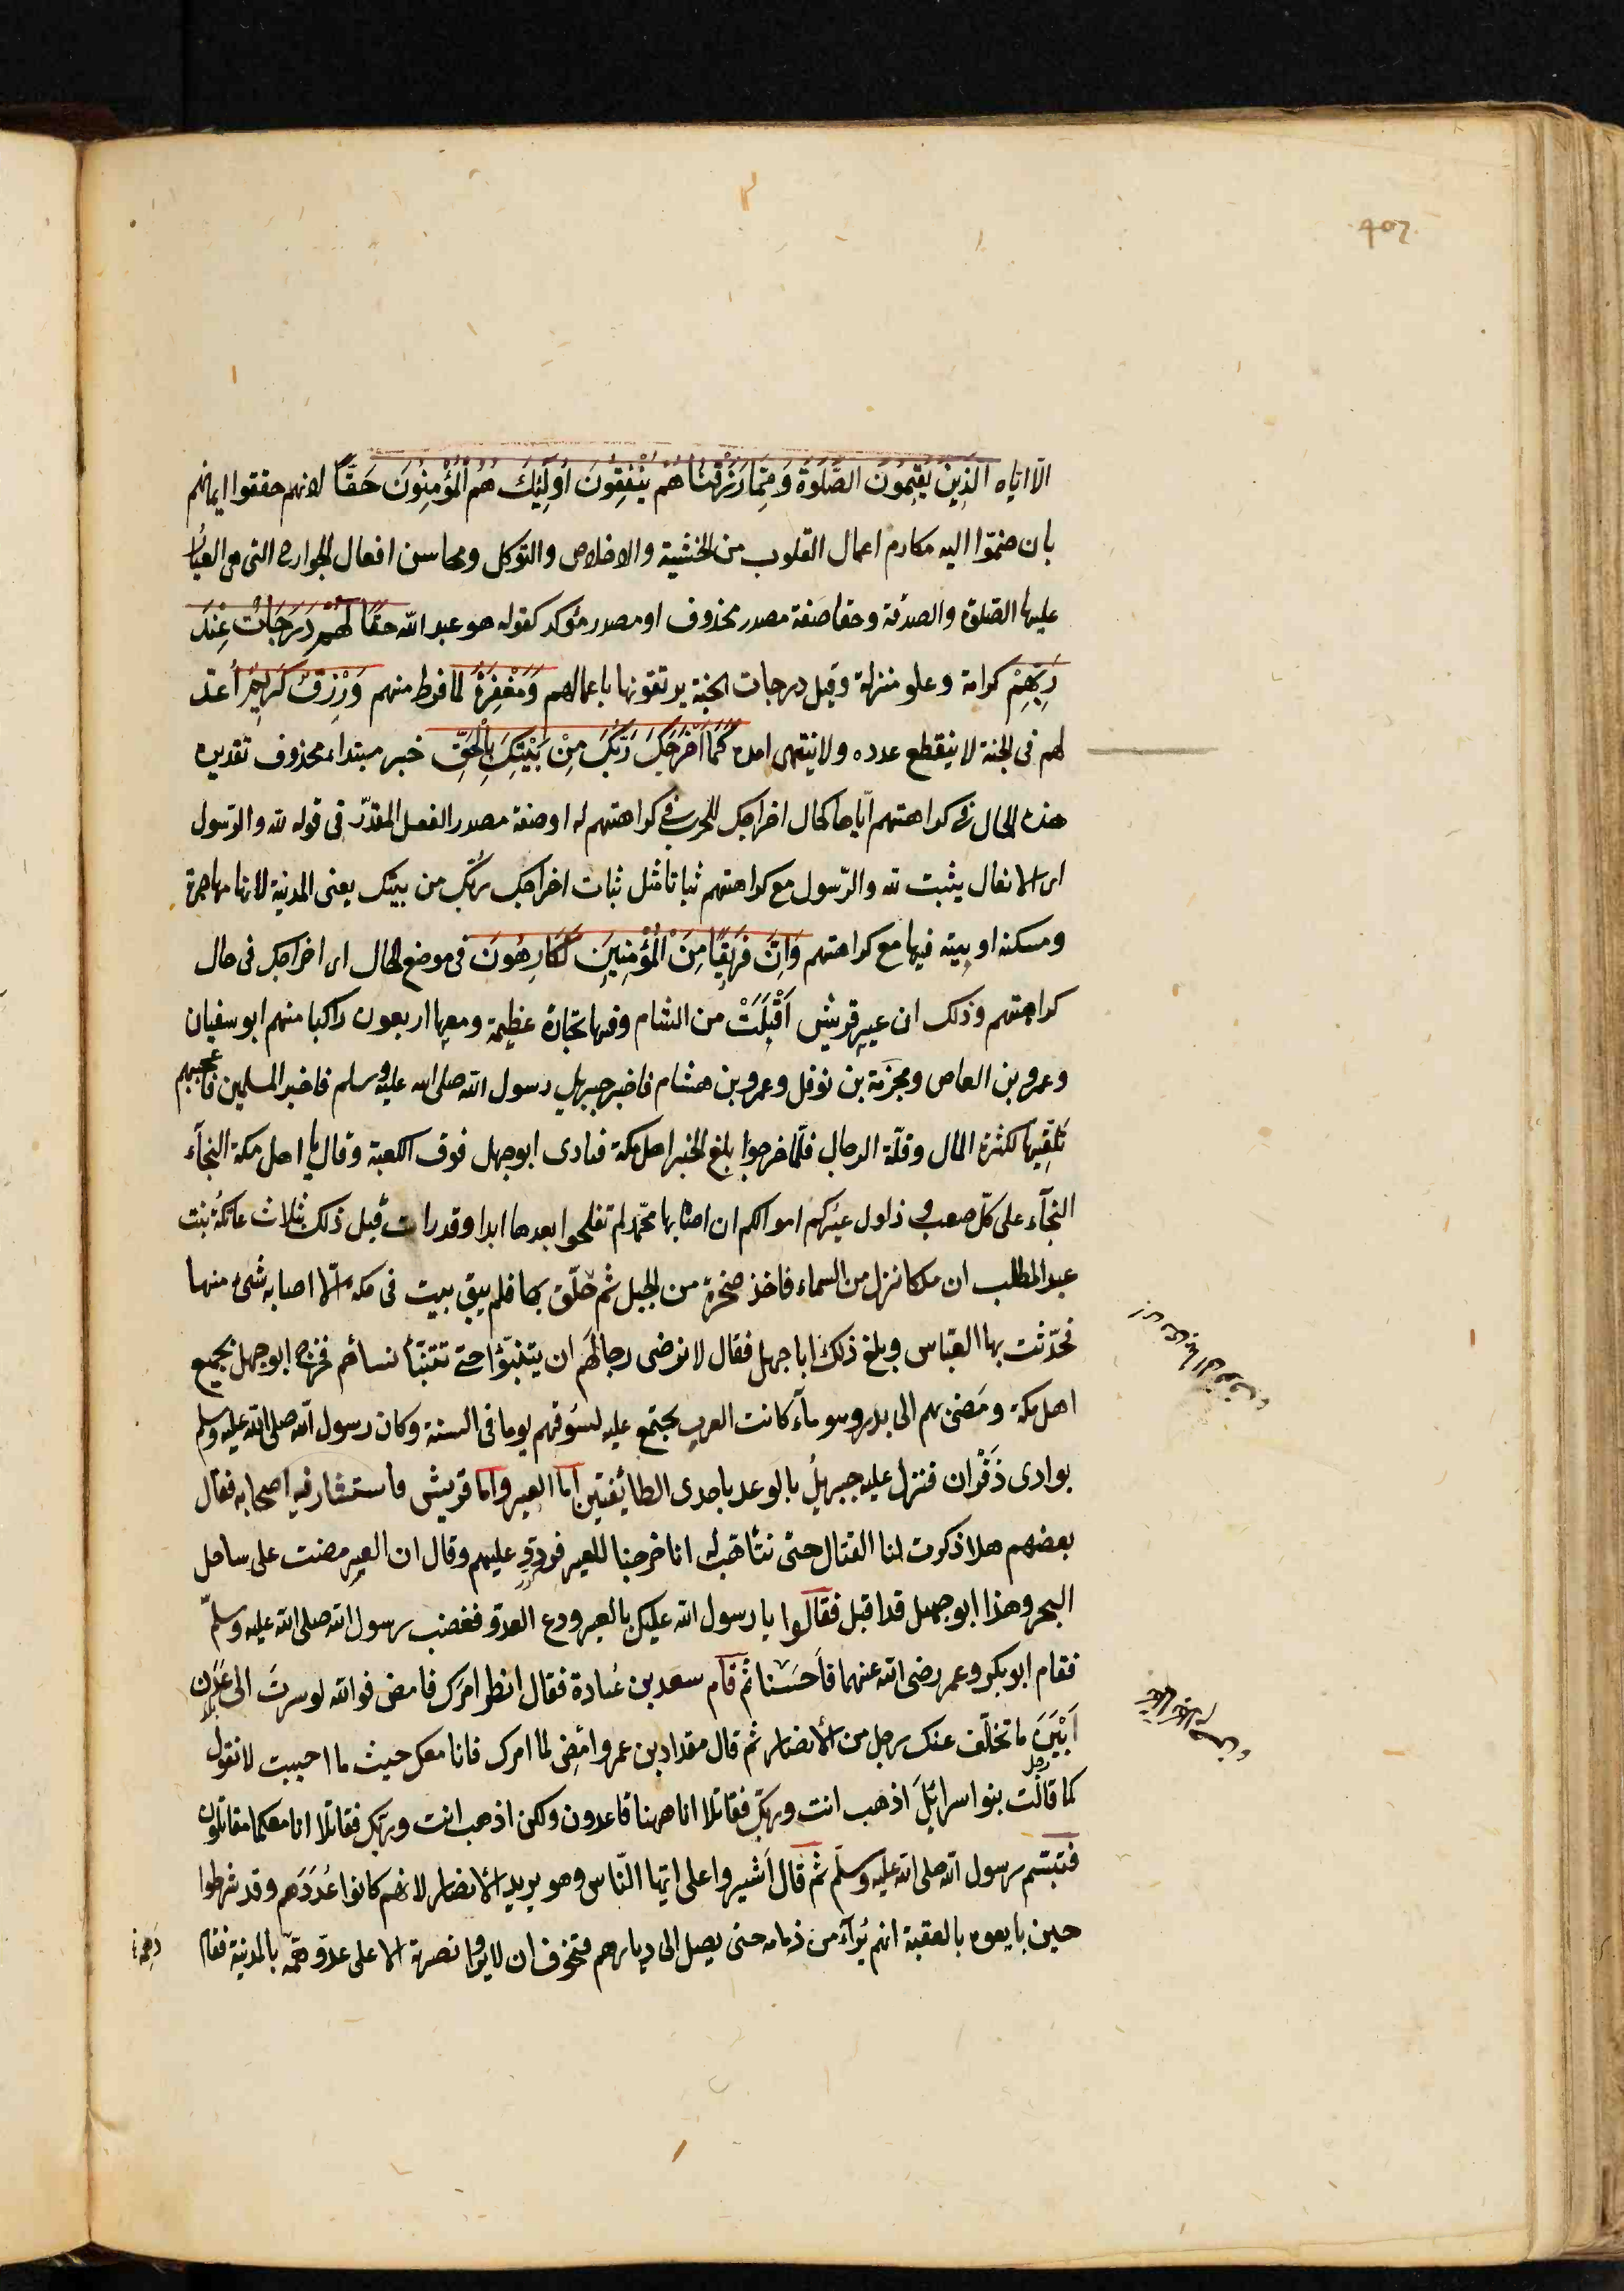 402
الا اياه الَّذِينَ يُقِيمُونَ الصَّلٰوةَ وَمِمَّا رَزَقْنَاهُمْ يُنْفِقُونَ اُولٰٓئِكَ هُمُ الْمُؤْمِنُونَ حَقًّا لانهم حققوا ايمانهم
بان ضمّوا اليه مكارم اعمال القلوب من الخشية والاخلاص والتوكل ومحاسن افعال الجوارح التى هى العيار
عليها الصّلوة والصدقة وحقا صفة مصدر محذوف او مصدر مؤكد كقوله هو عبد الله حقا لَهُمْ دَرَجَاتٌ عِنْدَ
رَبِّهِمْ كرامة وعلو منزلة وقيل درجات الجنة يرتقونها باعمالهم وَمَغْفِرَةٌ لما فرط منهم وَرِزْقٌ كَرِيمٌ اُعدّ
لهم فى الجنة لا ينقطع عدده ولا ينتهى امده كَمَا اَخْرَجَكَ رَبُّكَ مِنْ بَيْتِكَ بِالْحَقِّ خبر مبتداء محذوف تقديره
هذه الحال فى كراهتهم ايّاها كحال اخراجك للحرب فى كراهتهم له او صفة مصدر الفعل المقدّر فى قوله لله والرّسول
اى الانفال يثبت لله والرّسول مع كراهتهم ثباتا مثل ثبات اخراجك ربّك من بيتك يعنى المدينة لانها مهاجره
ومسكنه او بيته فيها مع كراهتهم وَاِنَّ فَرِيقًا مِنَ الْمُؤْمِنِينَ لَكَارِهُونَ فى موضع الحال اى اخراجك فى حال
كراهتهم وذلك ان عير قريش اَقْبَلَتْ من الشام وفيها تجارة عظيمة ومعها اربعون راكبا منهم ابو سفيان
وعمرو بن العاص ومخرمة بن نوفل وعمرو بن هشام فاخبر جبريل رسول الله صلى الله عليه وسلم فاخبر المسلمين فاعجبهم
تلقيها لكثرة المال وقلّة الرجال فلمّا خرجوا بلغ الخبر اهل مكة فنادى ابو جهل فوق الكعبة وقال يا اهل مكة النجآء
النجآء على كلّ صعب وذلول عيركم اموالكم ان اصابها محمّد لم تفلحوا بعدها ابدا وقد رات قبل ذلك بثلاث عاتكة بنت
عبد المطلب ان ملكا نزل من السماء فاخذ صخرة من الجبل ثم حلّق بها فلم يبق بيت فى مكه الّا اصابه شئ منها
فحدّثت بها العبّاس وبلغ ذلك ابا جهل فقال لا نرضى رجالهم ان يتنبّؤا حتى تتنبّأ نساؤهم فخرج ابو جهل بجميع
اهل مكة ومضى بهم الى بدر وهو مآء كانت العرب تجتمع عليه لسوقهم يوما فى السنة وكان رسول الله صلى الله عليه وسلم
بوادى ذَفْران فنزل عليه جبريل بالوعد باحدى الطائفتين اما العير واما قريش فاستشار فيه اصحابه فقال
بعضهم هلا ذكرت لنا القتال حتى نتأهب له انا خرجنا للعير فردّد عليهم وقال ان العير مضت على ساحل
البحر وهذا ابو جهل قد اقبل فقالوا يا رسول الله عليك بالعير ودع العدو فغضب رسول الله صلى الله عليه وسلّم
فقام ابو بكر وعمر رضى الله عنهما فاَحسَنا ثم قام سعد بن عُبادة فقال انظر امرَك فامض فوالله لو سرتَ الى عَدَن
اَبْيَنَ ما تخلّف عنك رجل من الانصار ثم قال مقداد بن عمرو امضِ لما امرك فانا معك حيث ما احببت لا نقول
كما قالت بنو اسرائيلَ اذهب انت وربّك فقاتلا انا ههنا قاعدون ولكن اذهب انت وربّك فقاتلا انا معكما مقاتلون
فتبسّم رسول الله صلى الله عليه وسلّم ثم قال اَشيروا على ايّها النّاس وهو يريد الانصار لانهم كانوا عُدَدَهم وقد شرطوا
حين بايعوه بالعقبة انهم بُرآء من ذمامه حتى يصل الى ديارهم فتخوف ان لا يروا نصرته الا على عدو دهمه بالمدينة فقام